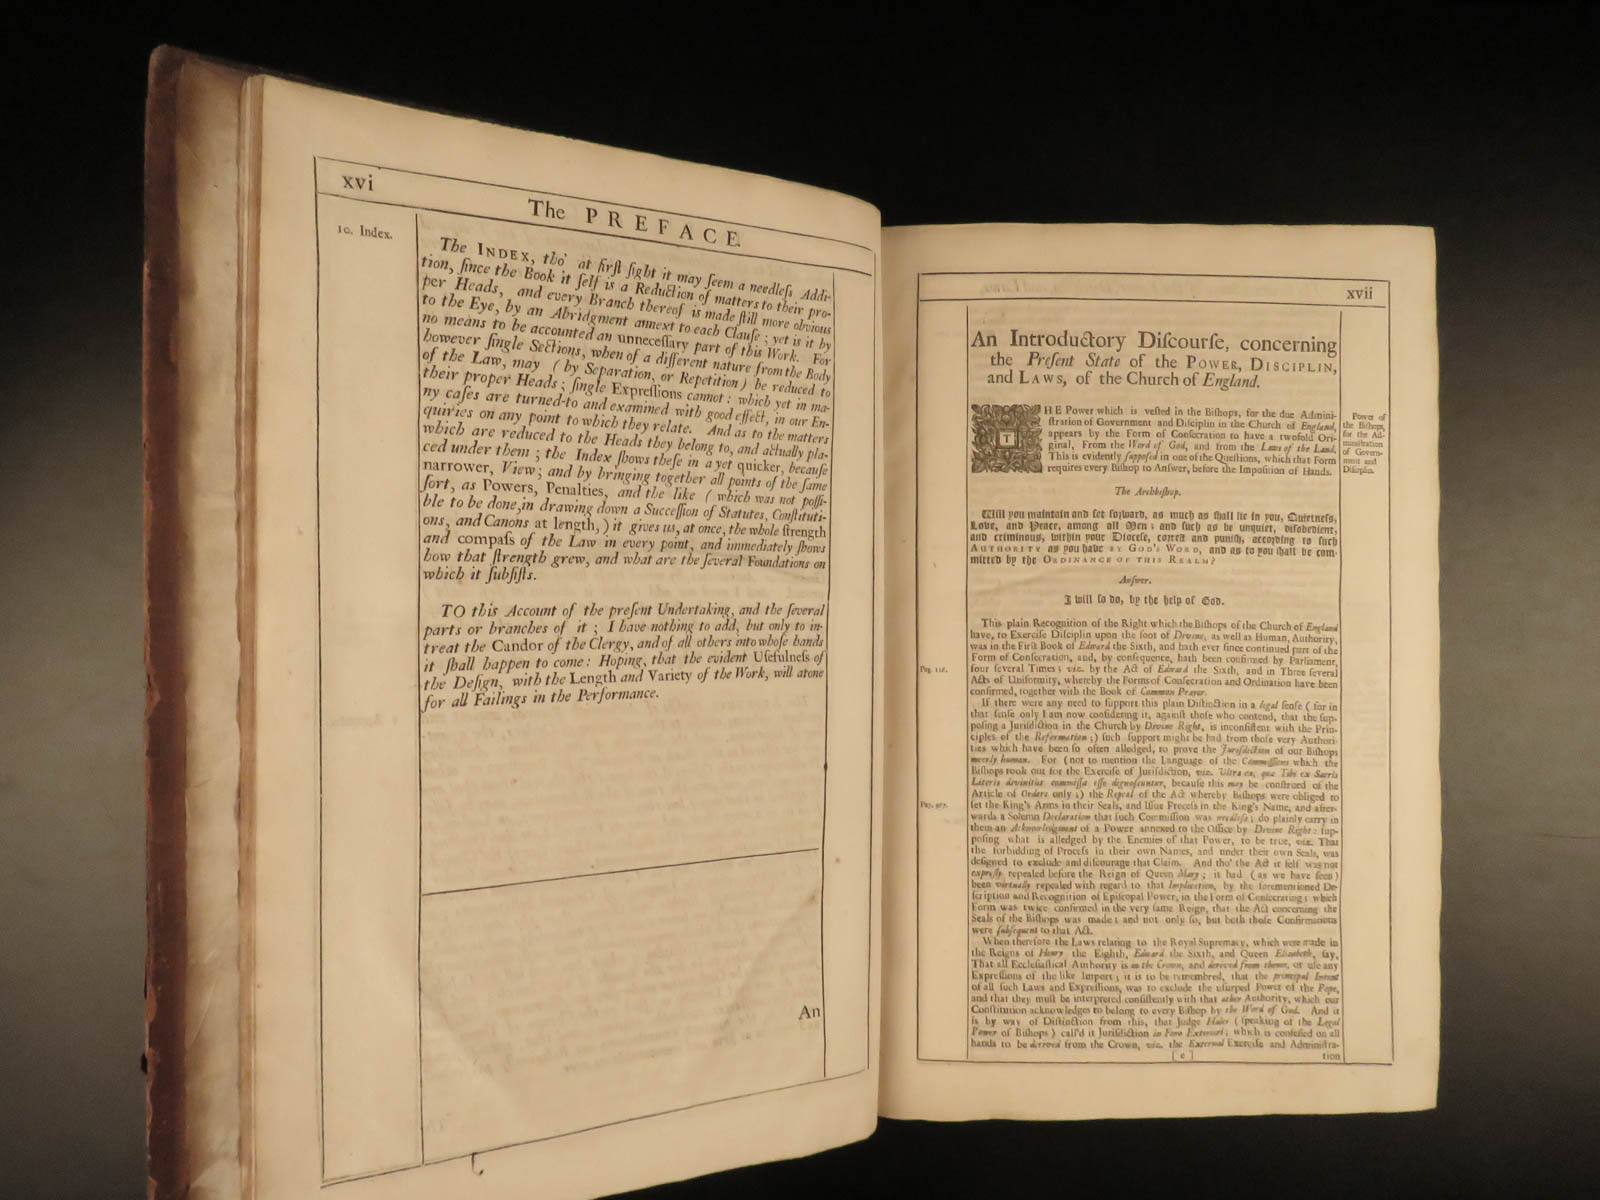 xvi
The PREFACE.
10. Index.
The INDEX, tho' at firſt ſight it may ſeem a needleſs Addi-
tion, ſince the Book it ſelf is a Reduction of matters to their pro-
per Heads, and every Branch thereof is made ſtill more obvious
to the Eye, by an Abridgment annext to each Clauſe; yet is it by
no means to be accounted an unneceſſary part of this Work. For
however ſingle Sections, when of a different nature from the Body
of the Law, may (by Separation, or Repetition) be reduced to
their proper Heads; ſingle Expreſſions cannot: which yet in ma-
ny caſes are turned-to and examined with good effect, in our En-
quiries on any point to which they relate. And as to the matters
which are reduced to the Heads they belong to, and actually pla-
ced under them; the Index ſhows theſe in a yet quicker, becauſe
narrower, View; and by bringing together all points of the ſame
ſort, as Powers, Penalties, and the like (which was not poſſi-
ble to be done, in drawing down a Succeſſion of Statutes, Conſtituti-
ons, and Canons at length,) it gives us, at once, the whole ſtrength
and compaſs of the Law in every point, and immediately ſhows
how that ſtrength grew, and what are the ſeveral Foundations on
which it ſubſiſts.
TO this Account of the preſent Undertaking, and the ſeveral
parts or branches of it; I have nothing to add, but only to in-
treat the Candor of the Clergy, and of all others into whoſe hands
it ſhall happen to come: Hoping, that the evident Uſefulneſs of
the Deſign, with the Length and Variety of the Work, will atone
for all Failings in the Performance.
An
xvii
An Introductory Diſcourſe, concerning
the Preſent State of the POWER, DISCIPLIN,
and LAWS, of the Church of England.
THE Power which is veſted in the Biſhops, for the due Admini-
ſtration of Government and Diſciplin in the Church of England,
appears by the Form of Conſecration to have a twofold Ori-
ginal, From the Word of God, and from the Laws of the Land.
This is evidently ſuppoſed in one of the Queſtions, which that Form
requires every Biſhop to Anſwer, before the Impoſition of Hands.
Power of
the Biſhops,
for the Ad-
miniſtration
of Govern-
ment and
Diſciplin.
The Archbiſhop.
Will you maintain and ſet forward, as much as ſhall lie in you, Quietneſs,
Love, and Peace, among all Men; and ſuch as be unquiet, diſobedient,
and criminous, within your Dioceſe, correct and puniſh, according to ſuch
AUTHORITY as you have BY GOD'S WORD, and as to you ſhall be com-
mitted by the ORDINANCE OF THIS REALM?
Anſwer.
I will ſo do, by the help of God.
This plain Recognition of the Right which the Biſhops of the Church of England
have, to Exerciſe Diſciplin upon the foot of Divine, as well as Human, Authority,
was in the Firſt Book of Edward the Sixth, and hath ever ſince continued part of the
Form of Conſecration, and, by conſequence, hath been confirmed by Parliament,
four ſeveral Times; viz. by the Act of Edward the Sixth, and in Three ſeveral
Acts of Uniformity, whereby the Forms of Conſecration and Ordination have been
confirmed, together with the Book of Common Prayer.
If there were any need to ſupport this plain Diſtinction in a legal ſenſe (for in
that ſenſe only I am now conſidering it, againſt thoſe who contend, that the ſup-
poſing a Juriſdiction in the Church by Divine Right, is inconſiſtent with the Prin-
ciples of the Reformation;) ſuch ſupport might be had from thoſe very Authori-
ties which have been ſo often alledged, to prove the Juriſdiction of our Biſhops
meerly human. For (not to mention the Language of the Commiſſions which the
Biſhops took out for the Exerciſe of Juriſdiction, viz. Ultra ea, quæ Tibi ex Sacris
Literis divinitus commiſſa eſſe dignoſcuntur, becauſe this may be conſtrued of the
Article of Orders only;) the Repeal of the Act whereby Biſhops were obliged to
ſet the King's Arms in their Seals, and Iſſue Proceſs in the King's Name, and after-
wards a Solemn Declaration that ſuch Commiſſion was needleſs; do plainly carry in
them an Acknowledgment of a Power annexed to the Office by Divine Right: ſup-
poſing what is alledged by the Enemies of that Power, to be true, viz. That
the forbidding of Proceſs in their own Names, and under their own Seals, was
deſigned to exclude and diſcourage that Claim. And tho' the Act it ſelf was not
expreſly repealed before the Reign of Queen Mary; it had (as we have ſeen)
been virtually repealed with regard to that Implication, by the forementioned De-
ſcription and Recognition of Epiſcopal Power, in the Form of Conſecrating; which
Form was twice confirmed in the very ſame Reign, that the Act concerning the
Seals of the Biſhops was made; and not only ſo, but both thoſe Confirmations
were ſubſequent to that Act.
When therefore the Laws relating to the Royal Supremacy, which were made in
the Reigns of Henry the Eighth, Edward the Sixth, and Queen Elizabeth, ſay,
That all Eccleſiaſtical Authority is in the Crown, and derived from thence, or uſe any
Expreſſions of the like Import; it is to be remembred, that the principal Intent
of all ſuch Laws and Expreſſions, was to exclude the uſurped Power of the Pope,
and that they muſt be interpreted conſiſtently with that other Authority, which our
Conſtitution acknowledges to belong to every Biſhop by the Word of God. And it
is by way of Diſtinction from this, that Judge Hales (ſpeaking of the Legal
Power of Biſhops) call'd it Juriſdiction in Foro Exteriori; which is confeſſed on all
hands to be derived from the Crown, viz. the External Exerciſe and Adminiſtra-
[c]
tion